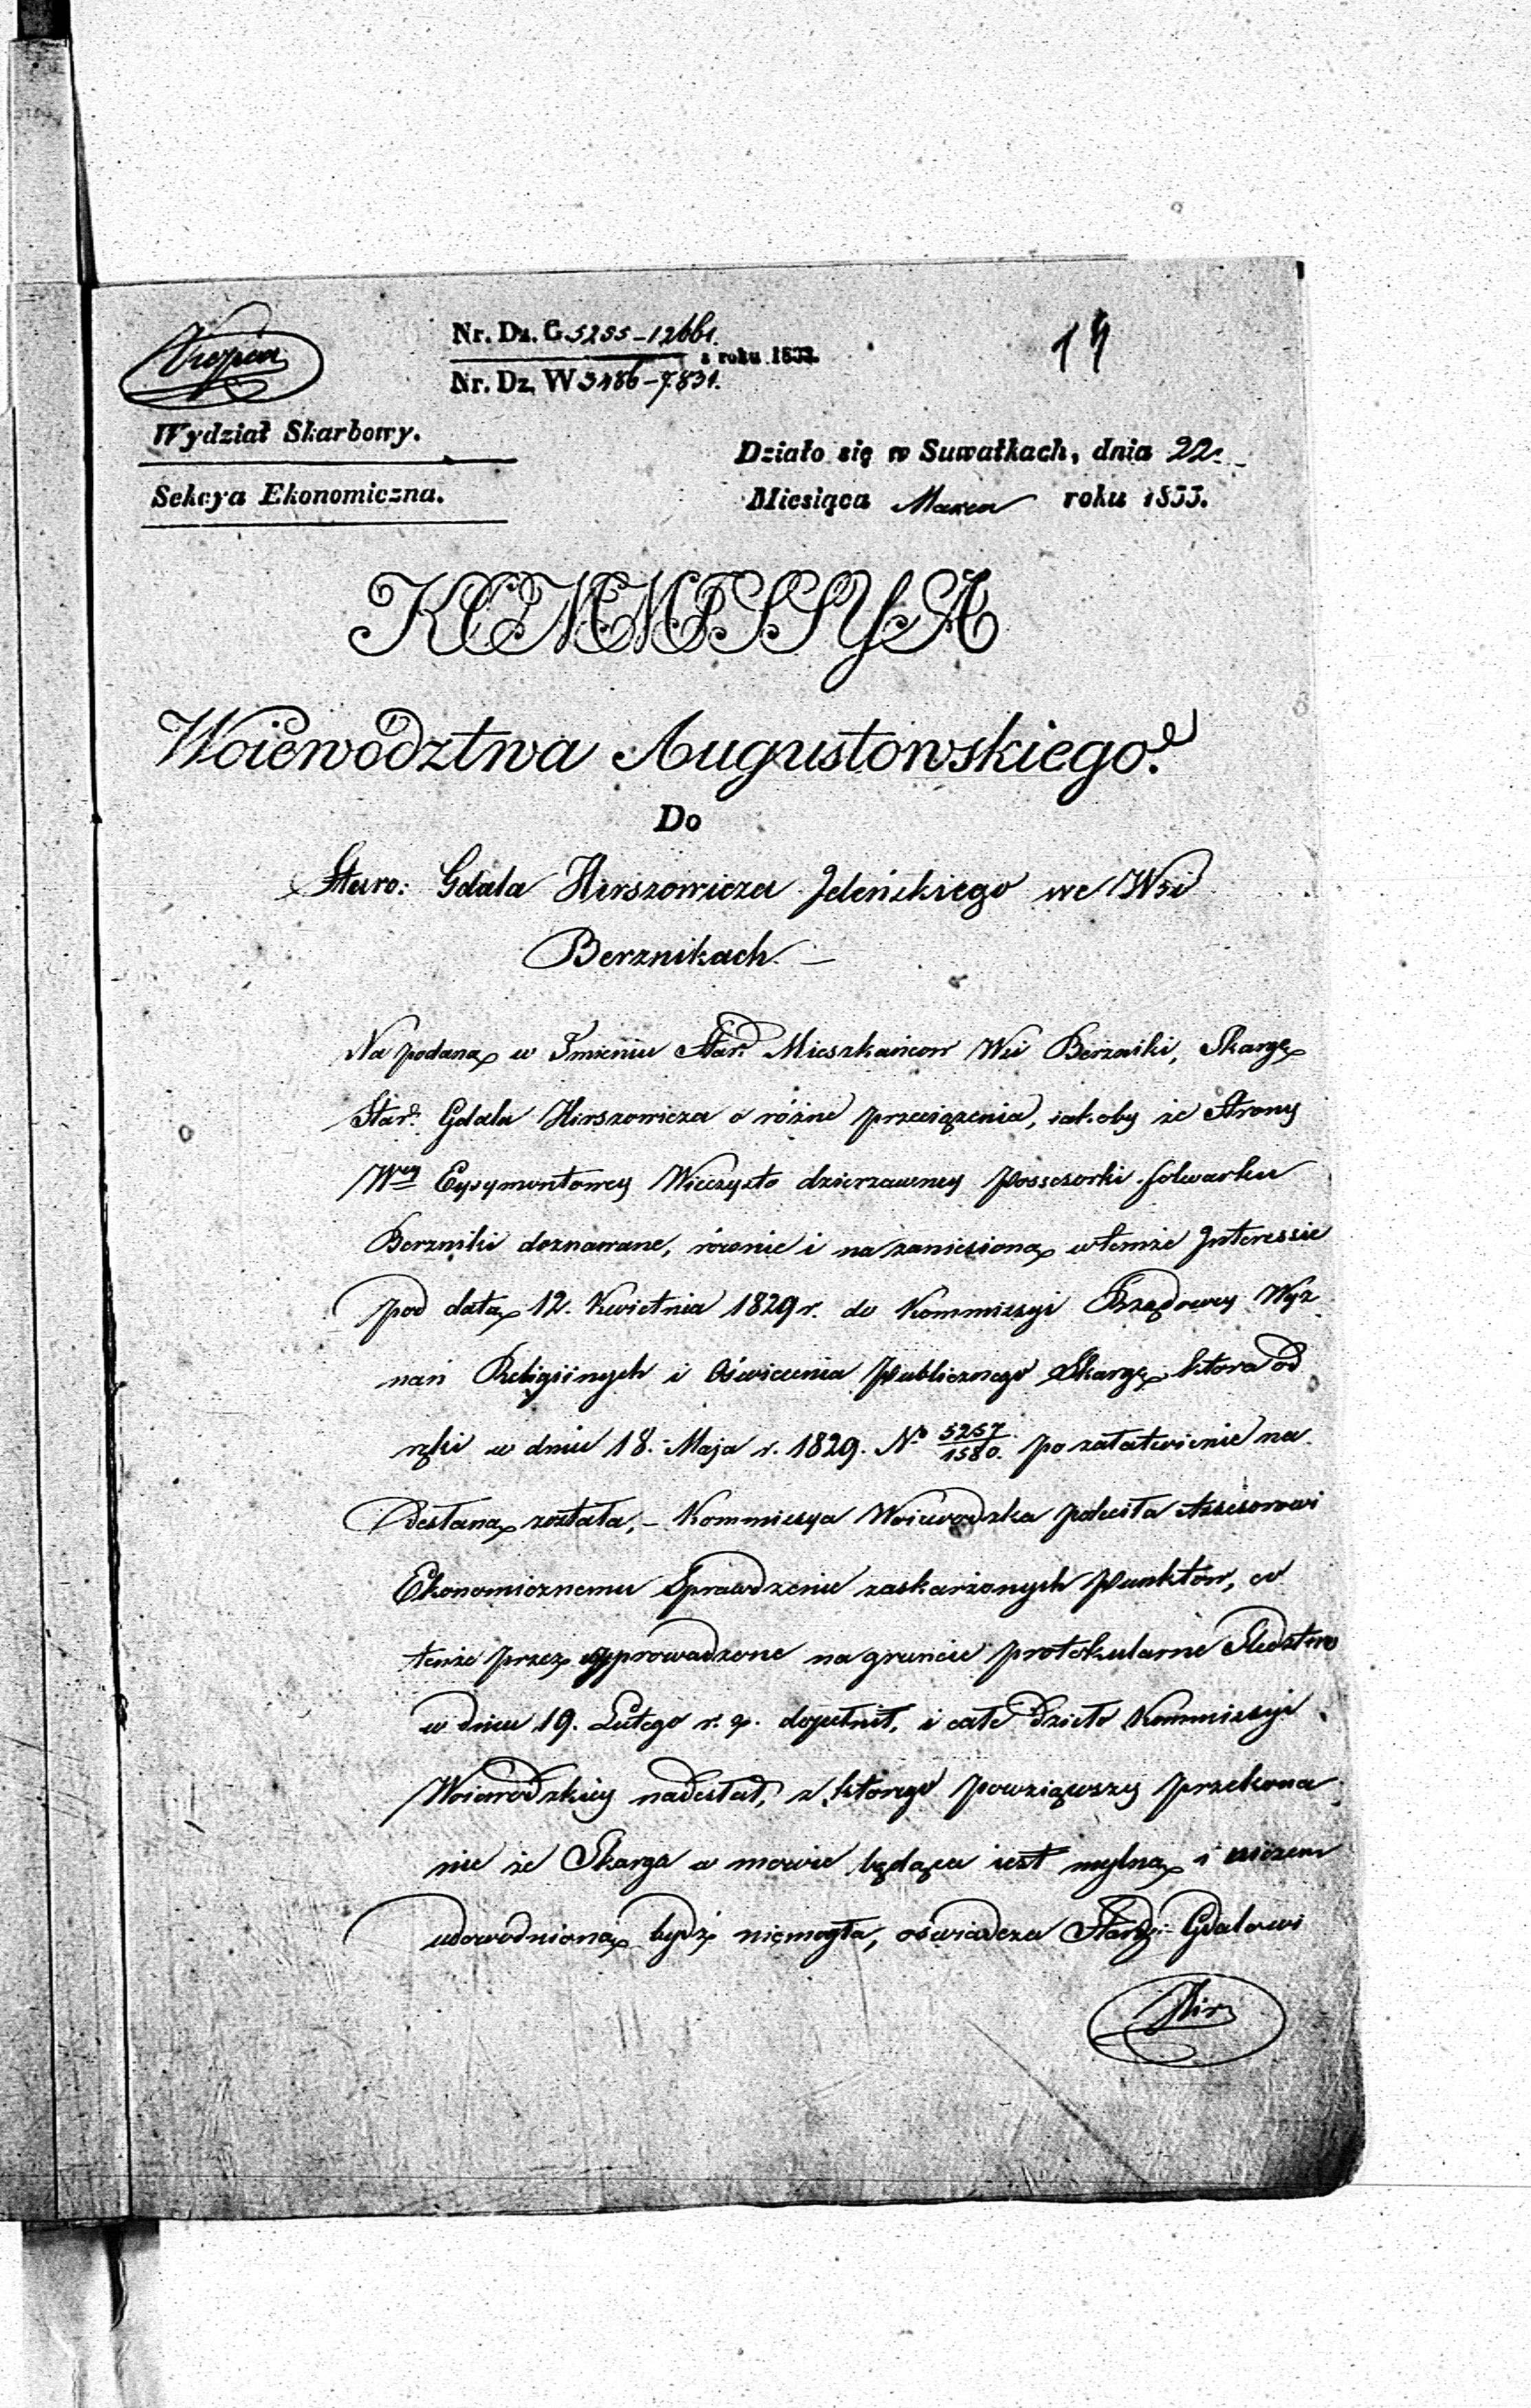 Kopia
Nr. Dz. G 5255-12661.
z roku 1833.
Nr. Dz. W 3486-7831.
14
Wydział Skarbowy.
Sekcya Ekonomiczna.
Działo się w Suwałkach, dnia 22.
Miesiąca Marca roku 1833.
KOMMISSYA
Woiewództwa Augustowskiego.
Do
Staro: Gdala Hirszowicza Jeleńskiego we Wsi
Berznikach. —
Na podaną w Imieniu Star: Mieszkańcow Wsi Berzniki, Skargę
Star: Gdala Hirszowicza o różne przeciążenia, iakoby ze Strony
Wey Eysymontowey Wieczysto dzierzawney Possesorki folwarku
Berzniki doznawane, rownie i na zaniesioną w temże Interessie
pod datą 12. Kwietnia 1829 r. do Kommissyi Rządowey Wyz
nań Religiinych i Oświecenia Publicznego Skargę, ktora od
rzki w dniu 18. Maja r. 1829. No 5257/1580. po załatwienie na
desłaną została, – Kommissya Woiewodzka poleciła Assesorowi
Ekonomicznemu Sprawdzenie zaskarżonych Punktów, co
tenże przez wyprowadzone na gruncie protokularne Sledztwo
w dniu 19. Lutego r. z. dopełnił, i całe dzieło Kommissyi
Woiewodzkiey nadesłał, z ktorego powziąwszy przekona
nie że Skarga w mowie będąca iest mylną i niczem
udowodnioną bydź niemogła, oświadcza Star: Gdalowi
Hir